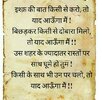 इश्क़ की बात किसी से करो, तो
याद आऊँगा मैं !
बिछड़कर किसी से दोबारा मिलो,
तो याद आऊँगा मैं !!
उस शहर के ज्यादातर रास्तों पर
साथ घूमे हो तुम !
किसी के साथ भी उन पर चलो, तो
याद आऊँगा मैं !!